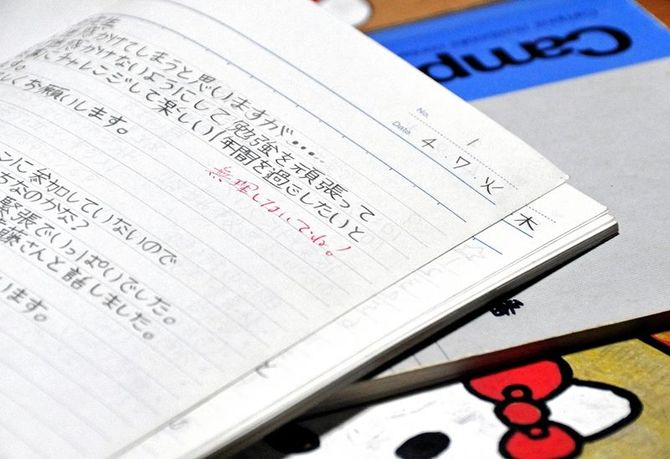 Campus
No. 1
Date 4・7・火
迷惑かけてしまうと思いますが…..
迷惑かけないようにして勉強を頑張って
にチャレンジして楽しい1年間を過ごしたいと
しくお願いします。
無理しないでね!
木
ンに参加していないので
ちなのかな?
緊張でいっぱいでした。
藤さんと話しました。
います。